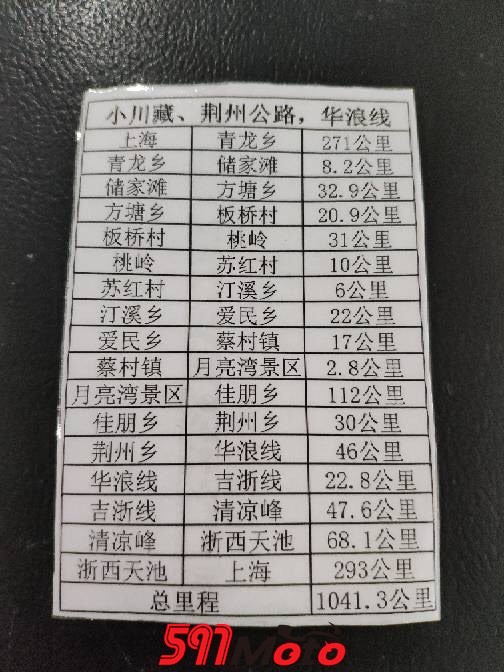 小川藏、荆州公路，华浪线
上海 青龙乡 271公里
青龙乡 储家滩 8.2公里
储家滩 方塘乡 32.9公里
方塘乡 板桥村 20.9公里
板桥村 桃岭 31公里
桃岭 苏红村 10公里
苏红村 汀溪乡 6公里
汀溪乡 爱民乡 22公里
爱民乡 蔡村镇 17公里
蔡村镇 月亮湾景区 2.8公里
月亮湾景区 佳朋乡 112公里
佳朋乡 荆州乡 30公里
荆州乡 华浪线 46公里
华浪线 吉浙线 22.8公里
吉浙线 清凉峰 47.6公里
清凉峰 浙西天池 68.1公里
浙西天池 上海 293公里
总里程 1041.3公里
597Moto